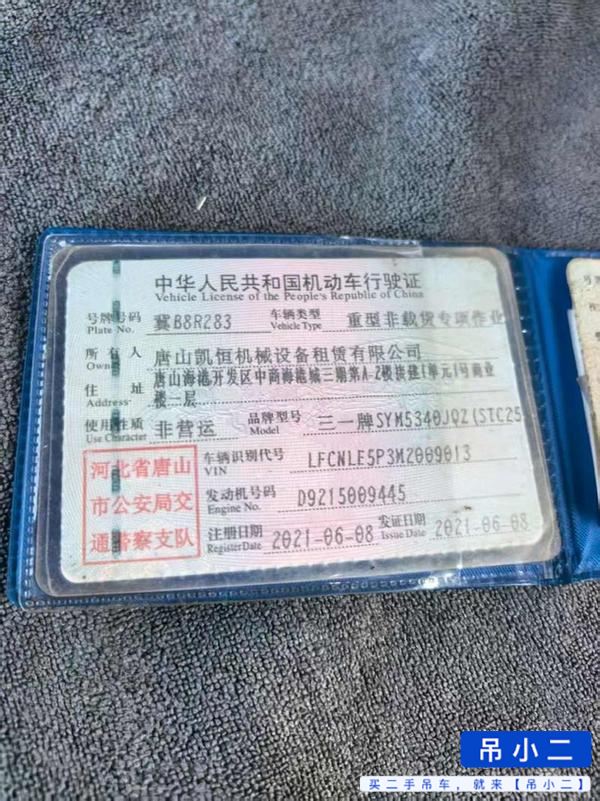 中华人民共和国机动车行驶证
Vehicle License of the People's Republic of China
号牌号码 冀B8R283 车辆类型 重型非载货专项作业
Plate No. Vehicle Type
所有人 唐山凯恒机械设备租赁有限公司
Owner
住址 唐山海港开发区中商海港城三期第A-2楼拱建1单元1号商业
Address 楼一层
使用性质 非营运 品牌型号 三一牌SYM5340JQZ(STC25
Use Character Model
河北省唐山
市公安局交
通警察支队
车辆识别代号 LFCNLE5P3M2009013
VIN
发动机号码 D9215009445
Engine No.
注册日期 2021-06-08 发证日期 2021-06-08
RegisterDate Issue Date
吊小二
买二手吊车，就来【吊小二】